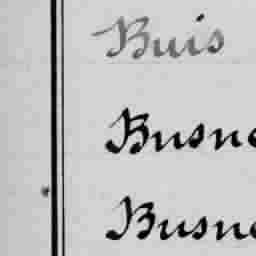 Buis
Busne
Busne